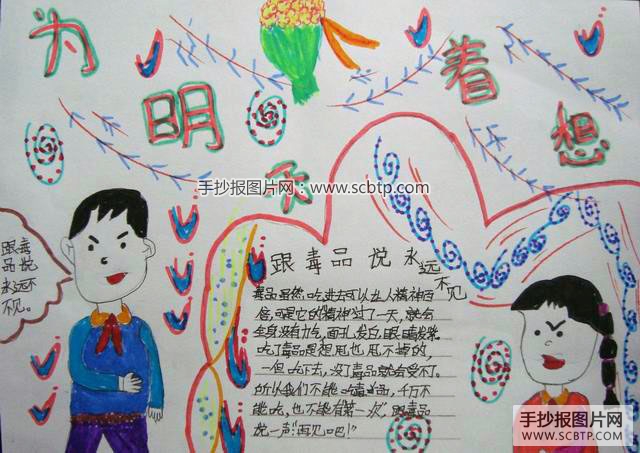 为明天着想
手抄报图片网：www.scbtp.com
跟毒品说永远不见
跟毒
品说
永远不
见。
毒品虽然吃进去可以让人精神百
倍,可是它的精神过了一天,就会
全身没有力气,面孔发白,眼睛发紫。
吃了毒品是想甩也甩不掉的,
一但吃下去,没了毒品就会受不了。
所以我们不能吃毒品,千万不
能吃,也不能有第一次,跟毒品
说一声:"再见吧!"
手抄报图片网
WWW.SCBTP.COM